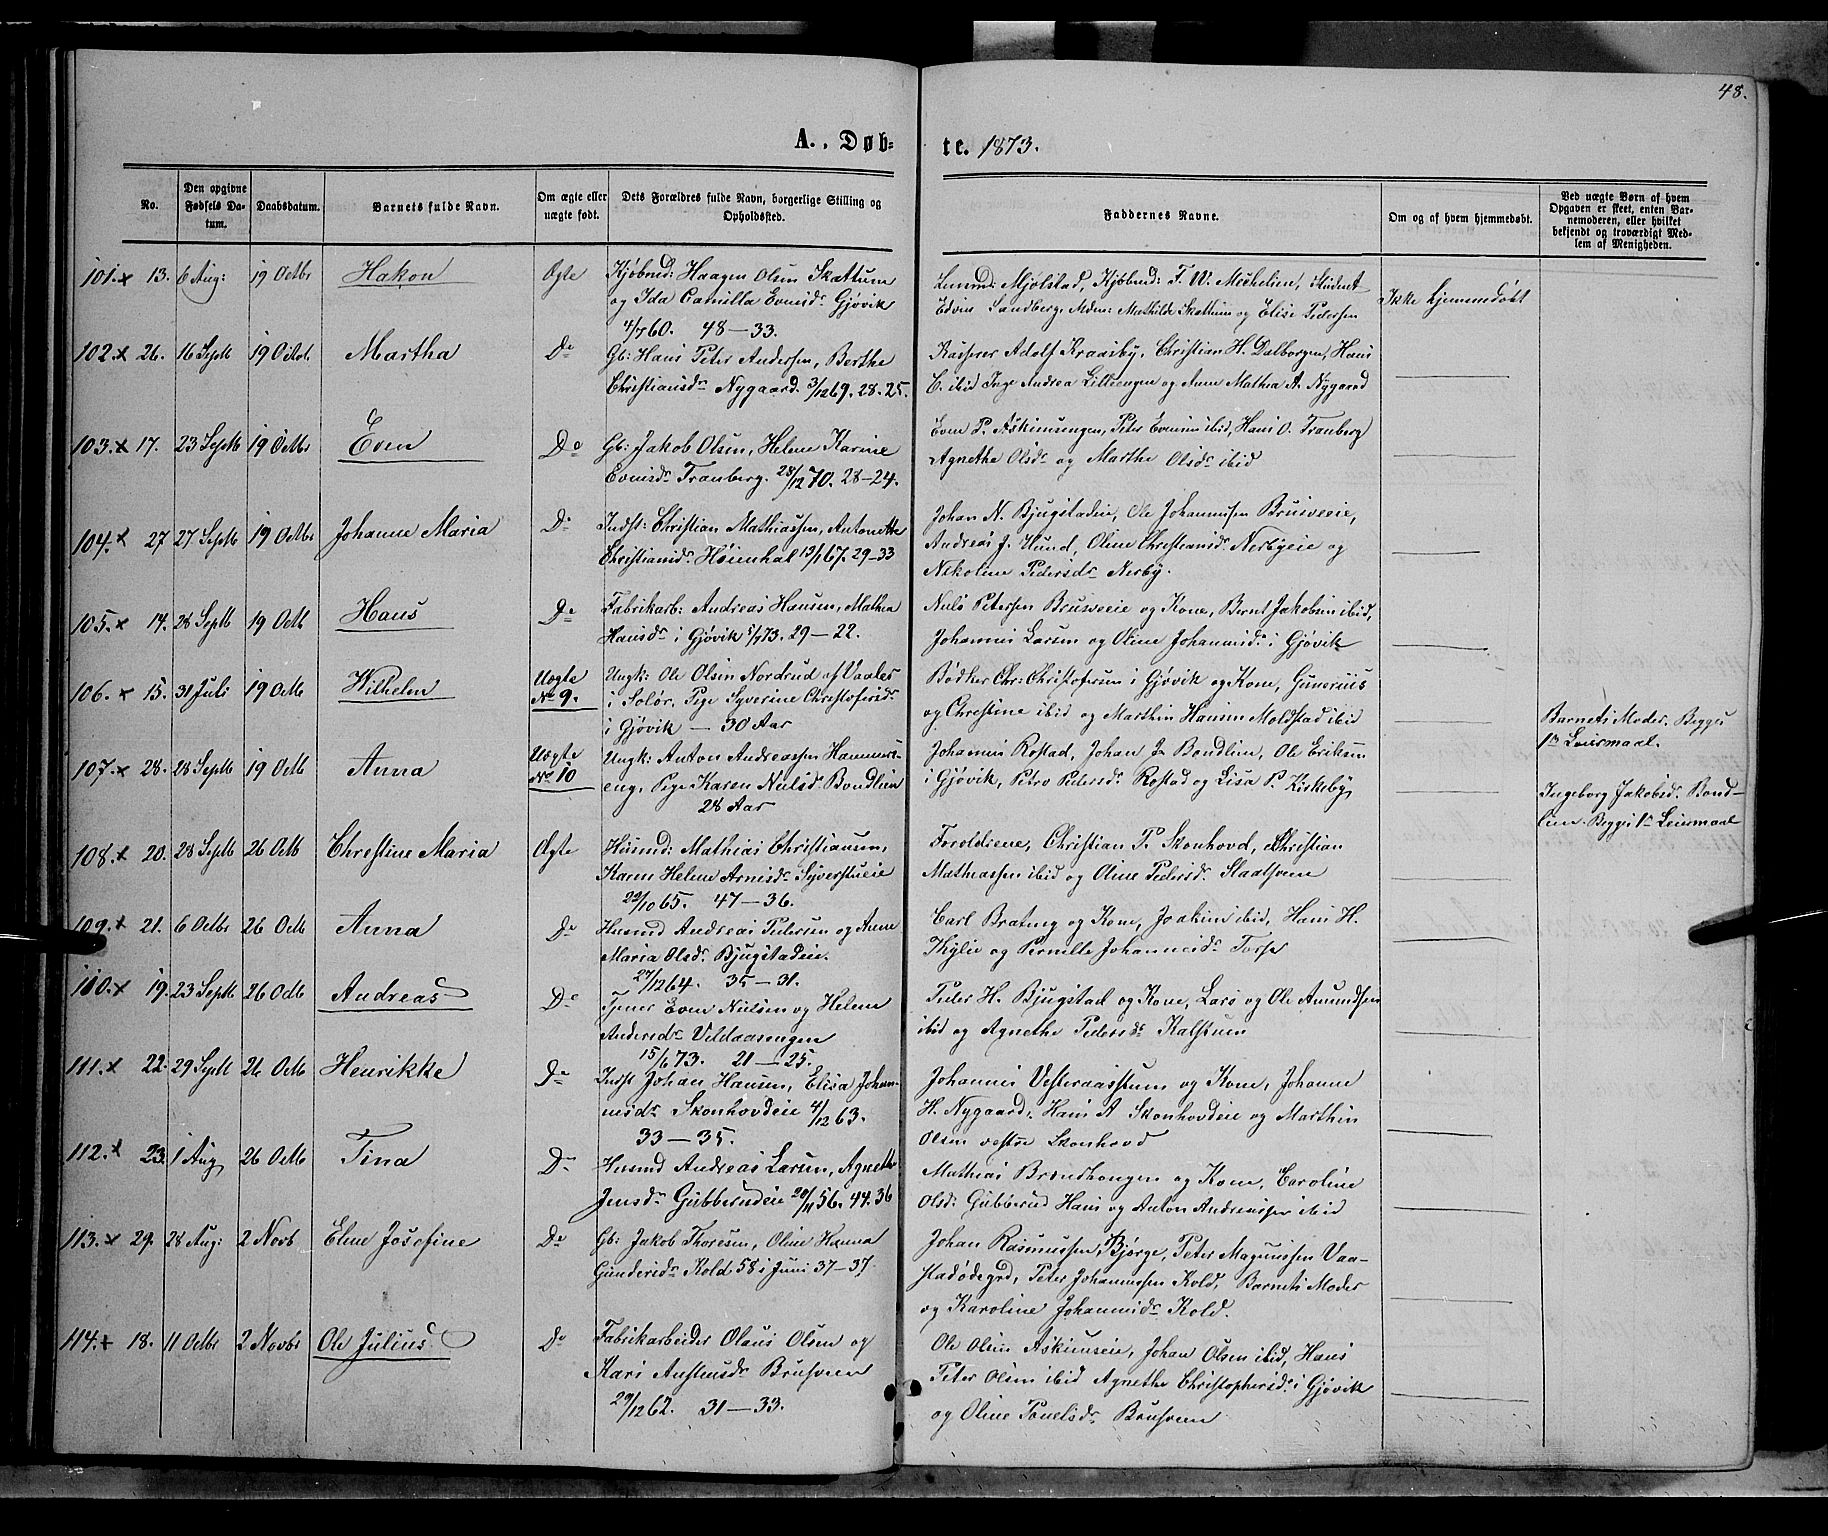 48.
A. Døb-
te. 1873.
No.
Den opgivne
Fødsels Da-
tum.
Daabsdatum.
Barnets fulde Navn.
Om ægte eller
uægte født.
Dets Forældres fulde Navn, borgerlige Stilling og
Opholdssted.
Faddernes Navne.
Om og af hvem hjemmedøbt.
Ved uægte Børn af hvem
Opgaven er skeet, enten Bar-
nemoderen, eller hvilket
bekjendt og troværdigt Med-
lem af Menigheden.
101.x 13. 6 Aug: 19 Octbr Hakon Ægte
Kjøbmd: Haagen Olsen Skattum
og Ida Camilla Evensdr Gjøvik
4/7 60. 48-33.
Lensmd: Mjølstad, Kjøbmd: F. W. Mechelien, Student
Edvin Sandberg, Mdm: Mathilde Skattum og Elise Pedersen
Ikke hjemmedøbt
102.x 26. 16 Septb 19 Octbr Martha Do
Gb: Hans Peter Andersen, Berthe
Christiansdr Nygaard. 3/12 69. 28-25.
Kasserer Adolf Kraasby, Christian H. Dalborgen, Hans
C. ibid Inge Andrea Lilleengen og Anne Mathea A. Nygaard
103.x 17. 23 Septb 19 Octbr Even Do
Gb: Jakob Olsen, Helene Karine
Evensdr Tranberg. 28/12 70. 28-24.
Even P. Askimsengen, Peter Evensen ibid, Hans O. Tranberg
Agnethe Olsdr og Marthe Olsdr ibid
104.x 27 27 Septb 19 Octbr Johanne Maria Do
Indst: Christian Mathiassen, Antonette
Christiansdr Høienhal 13/1 67. 29-33
Johan N. Bjugstadeie, Ole Johannessen Brusveeie,
Andreas J. Hund, Oline Christiansdr Nerbyeie og
Nikoline Pedersdr Nerby.
105.x 14. 28 Septb 19 Octb Hans Do
Fabrikarb: Andreas Hansen, Mathea
Hansdr i Gjøvik 5/7 73. 29-22.
Nils Petersen Brusveeie og Kone, Bernt Jakobsen ibid,
Johannes Larsen og Oline Johannesdr i Gjøvik
106.x 15. 31 Juli 19 Octb Wilhelm Uægte
No 9.
Ungk: Ole Olsen Nordrud af Vaaler
i Solør, Pige Syverine Christofersdr
i Gjøvik - 30 Aar
Bødker Chr: Christofersen i Gjøvik og Kone, Gunerius
og Christine ibid og Marthin Hansen Moldstad ibid
Barnets Moder. Begges
1ste Leiermaal.
107.x 28. 28 Septb 19 Octb Anna Uægte
No 10
Ungk: Anton Andreassen Hammers-
eng, Pige Karen Nielsdr Bondlien
28 Aar
Johannes Rostad, Johan J. Bondlien, Ole Eriksen
i Gjøvik, Petra Pedersdr Rostad og Lisa P. Kirkeby,
Ingeborg Jakobsdr Bond-
lien. Begges 1ste Leiermaal
108.x 20. 28 Septb 26 Octb Christine Maria Ægte
Husmd: Mathias Christiansen,
Karen Helene Arnesdr Syverstueie
22/10 65. 47-36.
Forældrene, Christian P. Skonhovd, Christian
Mathiassen ibid og Oline Pedersdr Slaatsveen
109.x 21. 6 Octbr 26 Octb Anna Do
Husmd Andreas Pedersen og Anne
Maria Olsdr Bjugstadeie.
27/12 64. 35-31.
Carl Brateng og Kone, Joakim ibid, Hans H.
Thylie og Pernille Johannesdr Torse
110.x 19. 23 Septb 26 Octb Andreas Do
Tjener Even Nielsen og Helene
Andersdr Veldaasengen
15/1 73. 21-25.
Peder H. Bjugstad og Kone, Lars og Ole Amundsen
ibid og Agnethe Pedersdr Kalstuen
111.x 22. 29 Septb 26 Octb Henrikke Do
Indst Johan Hansen, Elisa Johan-
nesdr Skonhovdeie 4/12 63.
33-35.
Johannes Vesteraasstuen og Kone, Johanne
H. Nygaard, Hans A Skonhovdeie og Marthin
Olsen vestre Skonhovd
112.x 23. 1 Aug 26 Octb Tina Do
Husmd Andreas Larsen, Agnethe
Jensdr Gubberudeie 20/11 56. 44. 36
Mathias Brøndhongen og Kone, Caroline
Olsd: Gubberud Hans og Anton Andreassen ibid
113.x 29. 28 Aug: 2 Novb Eline Josefine Do
Gb: Jakob Thoresen, Oline Hanna
Gundersdr Kold 58 i Juni 37-37.
Johan Rasmussen Bjørge, Peter Magnussen Vaa-
stadødegrd, Peter Johannessen Kold, Barnets Moder
og Karoline Johannesdr Kold.
114.x 18. 11 Octbr 2 Novbr Ole Julius Do
Fabrikarbeider Olaus Olsen og
Kari Austensdr Brusveen
29/12 62. 31-33.
Ole Olsen Askimseie, Johan Olsen ibid, Hans
Peter Olsen ibid Agnethe Christophersdr i Gjøvik
og Oline Ponelsdr Brusveen